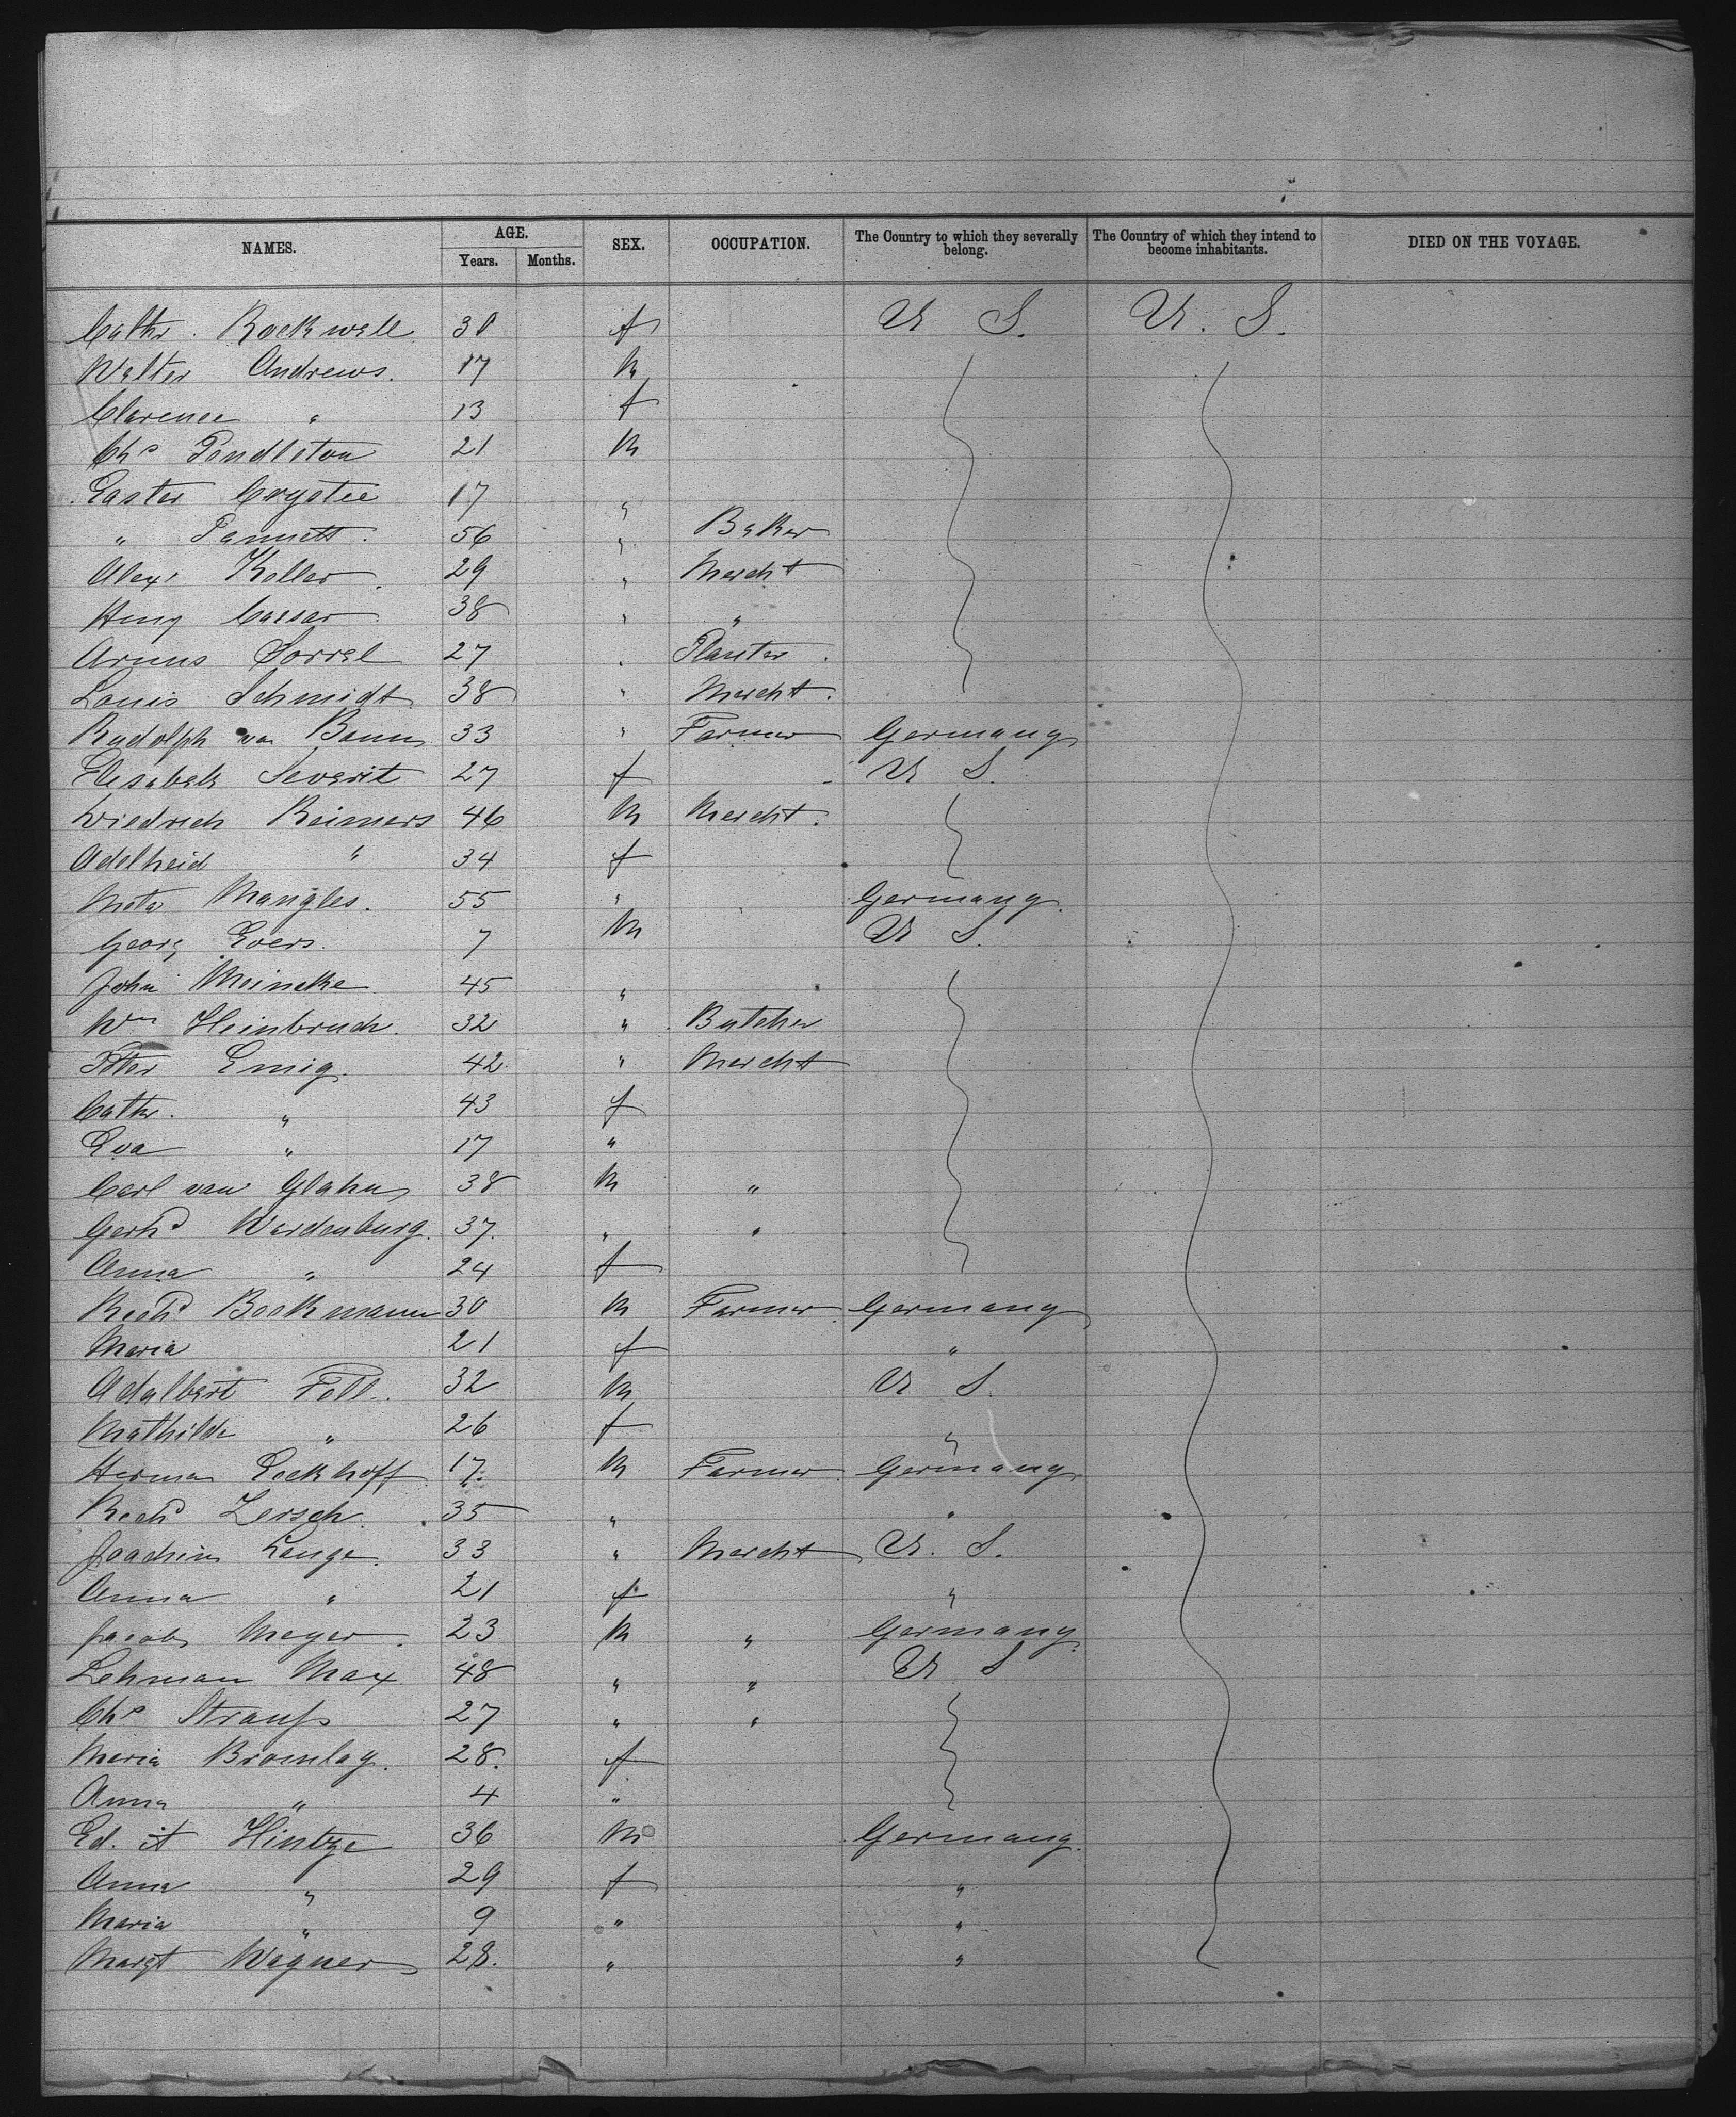 NAMES. AGE. SEX. OCCUPATION. The Country to which they severally belong. The Country of which they intend to become inhabitants. DIED ON THE VOYAGE.
Years. Months.
Cathr. Rockwell 30 f U S. U. S.
Walter Andrews. 17 m
Clarence " 13 f
Chs Pendleton 21 m
Easter Crystie 17 "
" Pannett. 56 " Baker
Alexr Keller. 29 " Mercht
Henry Caesar 38 " "
Sorrel 27 " Planter.
Louis Schmidt 38 " Mercht.
Rudolph van Bonn 33 " Farmer Germany
Elisabeth Severit 27 f U S.
Diedrich Reimers 46 m Mercht.
Adelheid " 34 f
Meta Mangles. 55 " Germany.
Georg Evers. 7 m U S.
John Meineke 45 "
Wm Heinbruch. 32 " Butcher
Peter Emig. 42. " Mercht
Cathr. " 43 f
Eva " 17 "
Carl van Glahn 38 m "
Gerhd Wardenburg. 37. " "
Anna " 24 f
Richd Bockmann 30 m Farmer Germany
Maria 21 f "
Adalbert Fell. 32 m U S.
Mathilde " 26 f "
Herman Eeckhoff 17. m Farmer Germany
Richd Zersch. 35 " "
Joachim Lange. 33 " Mercht U. S.
Anna " 21 f "
Jacob Meyer. 23 m " Germany
Lehman Max 48 " " U S
Chs Strauss 27 " "
Maria Bromlay. 28. f
Anna " 4 "
Ed. A Hintze 36 m Germany.
Anna " 29 f "
Maria " 9 " "
Margt Wagner 28. " "